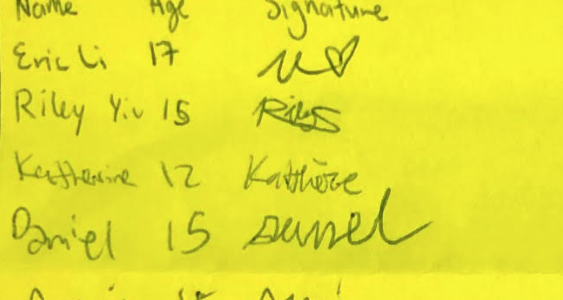 Name Age Signature
Eric Li 17
Riley Yiu 15 Riley
Katherine 12
Daniel 15 Daniel